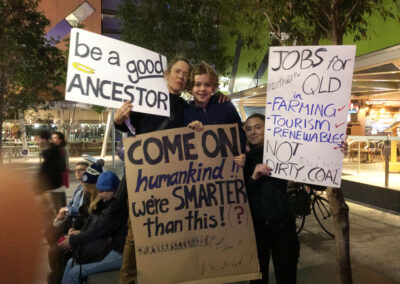 be a good
ANCESTOR
COME ON!
humankind
we're SMARTER
than this! (?)
JOBS for
QLD
in
-FARMING✓
-TOURISM✓
-RENEWABLES✓
NOT
DIRTY COAL